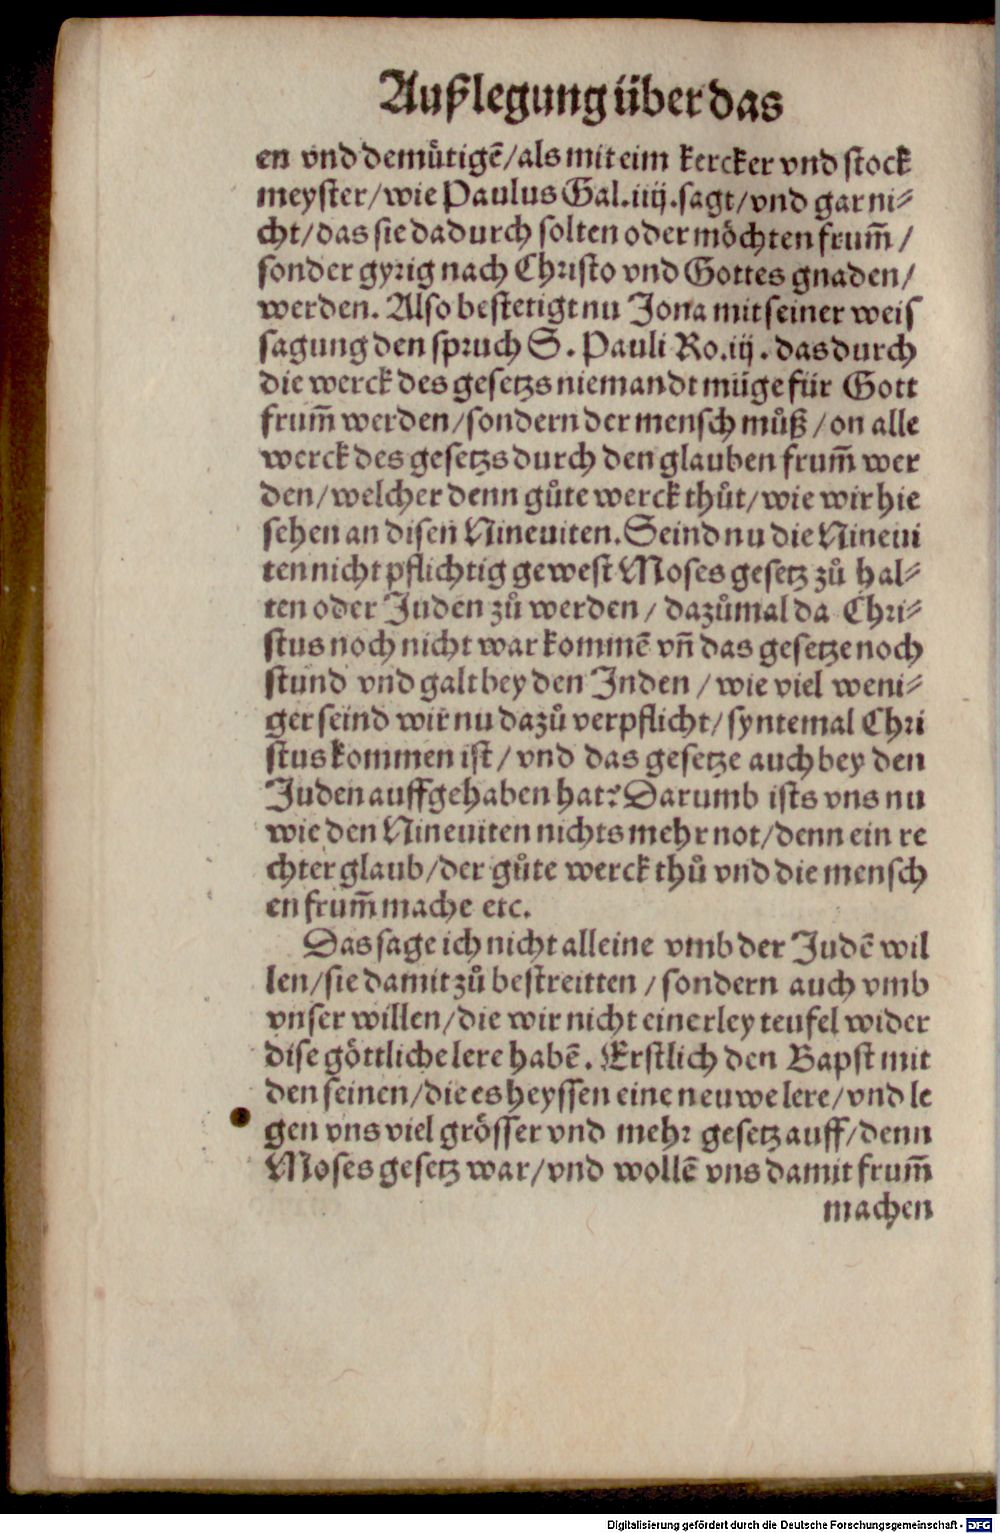 Außlegung über das
en vnd demütigē/als mit eim kercker vnd stock
meyster/wie Paulus Gal.iiij.sagt/vnd gar ni⸗
cht/das sie dadurch solten oder möchten frum̄/
sonder gyrig nach Christo vnd Gottes gnaden/
werden. Also bestetigt nu Jona mit seiner weis
sagung den spruch S. Pauli Ro.iij. das durch
die werck des gesetzs niemandt müge für Gott
frum̄ werden/sondern der mensch můß/on alle
werck des gesetzs durch den glauben frum̄ wer
den/welcher denn gůte werck thůt/wie wir hie
sehen an disen Nineuiten. Seind nu die Nineui
ten nicht pflichtig gewest Moses gesetz zů hal⸗
ten oder Juden zů werden/dazůmal da Chri⸗
stus noch nicht war kommē vn̄ das gesetze noch
stund vnd galt bey den Inden/wie viel weni⸗
ger seind wir nu dazů verpflicht/syntemal Chri
stus kommen ist/vnd das gesetze auch bey den
Juden auffgehaben hat? Darumb ists vns nu
wie den Nineuiten nichts mehr not/denn ein re
chter glaub/der gůte werck thů vnd die mensch
en frum̄ mache etc.
Das sage ich nicht alleine vmb der Judē wil
len/sie damit zů bestreitten/sondern auch vmb
vnser willen/die wir nicht einerley teufel wider
dise göttliche lere habē. Erstlich den Bapst mit
den seinen/die es heyssen eine neuwe lere/vnd le
gen vns viel grösser vnd mehr gesetz auff/denn
Moses gesetz war/vnd wollē vns damit frum̄
machen
Digitalisierung gefördert durch die Deutsche Forschungsgemeinschaft - DFG